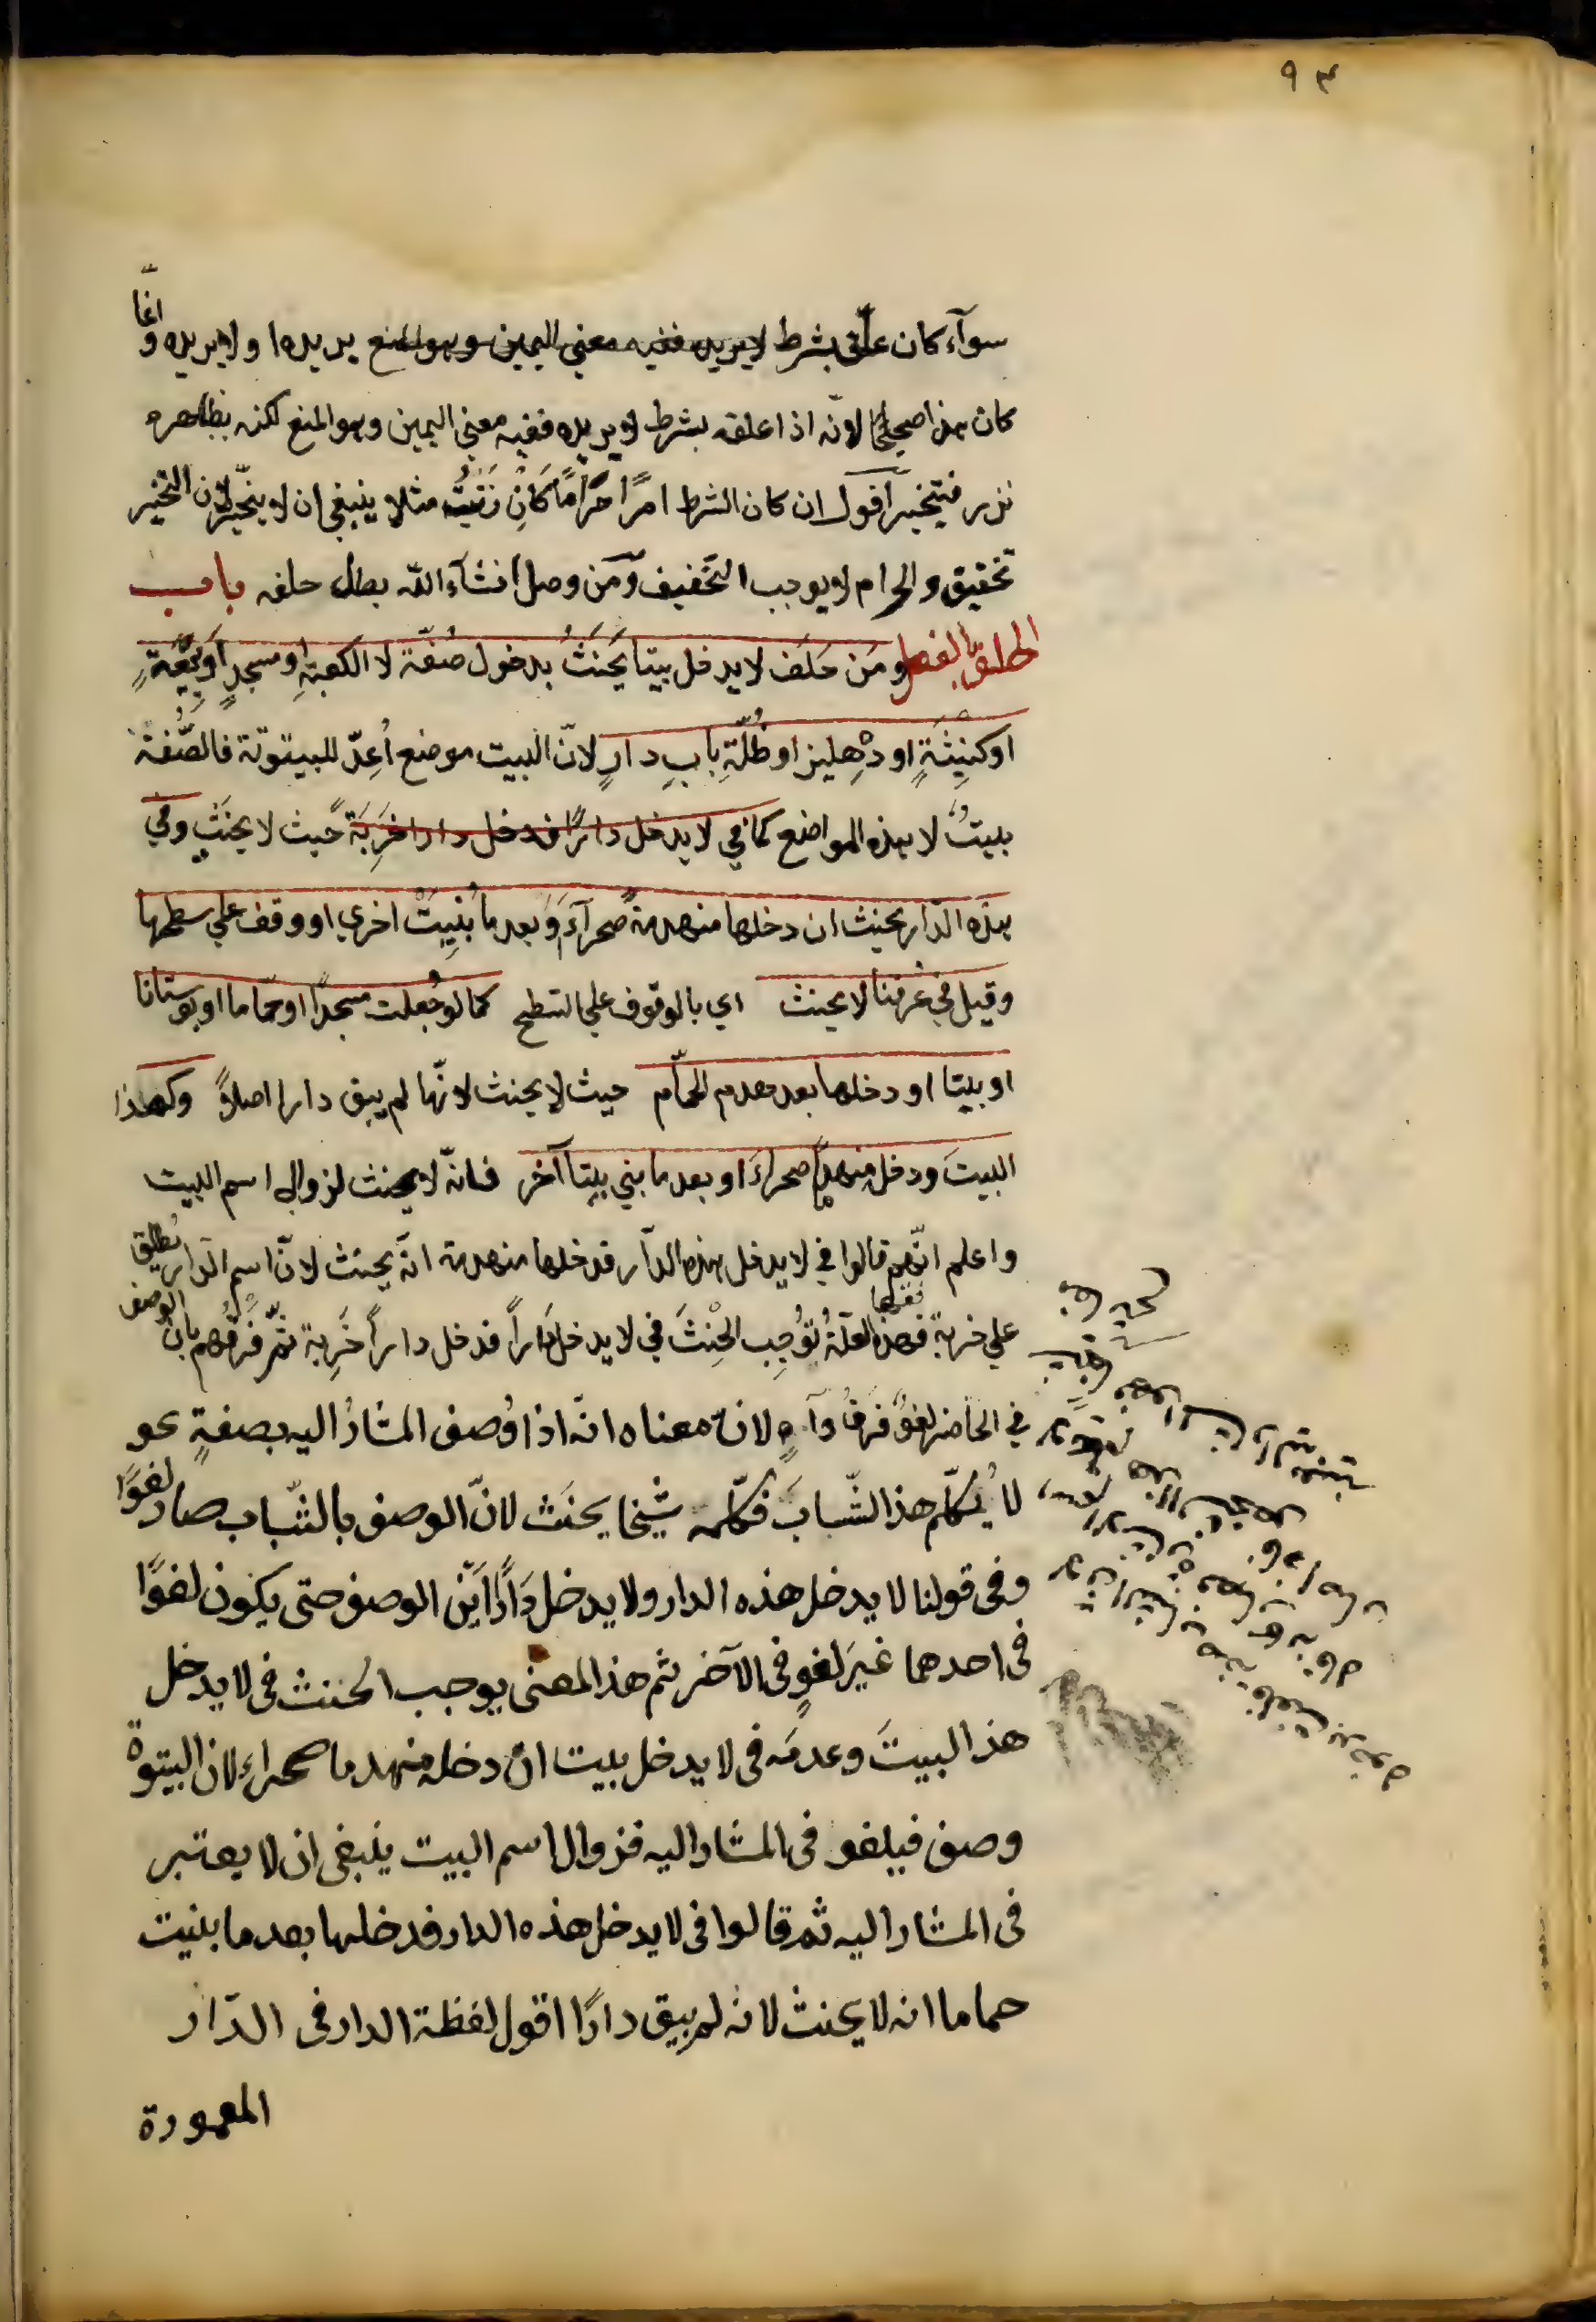 ٩٣
سوآء كان علّق بشرط لايريده ففيه معنى اليمين وهو المنع يريده او لايريده وانّما
كان هذا صحيحًا لانّه اذا علقه بشرط لا يريده ففيه معنى اليمين وهو المنع لكنه بظاهره
نذر فيتخير آقول ان كان الشرط امرًا حرامًا كَاِنْ زَنَيْتُ مثلا ينبغى ان لا يتخيّر لان التخير
تخفيق والحرام لا يوجب التخفيف وَمَن وصل انشآء الله بطل حلفه باب
الحلف بالفعل ومَن حَلَف لا يدخل بيتا يَحنَثُ بدخول صُفّة لا الكعبةِ او مسجدٍ او بِيْعَةٍ
او كنِيثَةٍ او دِهليز او ظُلّةِ بابِ دارٍ لانّ البيت موضع اُعِدّ للبيتوتة فالصُّفة
بيتٌ لا بهذه المواضع كما فى لا يدخل دارًا فدخل دارا خَرِبَةً حَيث لا يحنَث وفى
هذه الدّار يحنث ان دخلها منهدمة صحرآءَ وَبعد ما بُنِيَتْ اخرى او وقف على سطحها
وقيل فى عُرفنا لا يحنث اى بالوقوف على السّطح كما لو جُعلت مسجدًا او حمّاما او بوستانا
او بيتا او دخلها بعد هدم الحمّام حيث لا يحنث لانّها لم يبق دارا اصلاً وكهذا
البيتَ ودخل منهدمًا صحراءَ او بعد ما بنى بيتا آخر فانّه لا يحنث لزوال اسم البيت
واعلم انّهم قالوا فى لا يدخل هذه الدّار فدخلها منهدمة انّه يحنث لانّ اسم الدّار يُطلق
على خربة فهذه العلّةُ تُوْجِب الحِنْثَ فى لا يدخل دَاراً فدخل داراً خَرِبة ثمّ فَرقُهم بان الوصف
فى الحاضر لغوٌ فَرقٌ واهٍ لانّ معناه انّه اذا وُصف المشارُ اليه بصفةٍ نحو
لا يُكلّم هذا الشّابَ فكلّمه شيخا يحنَث لانّ الوصف بالشّباب صار لغوًا
وفى قولنا لا يدخل هذه الدار ولا يدخل دَارًا اَيْن الوصف حتى يكون لغوًا
فى احدهما غيرَ لغوٍ فى الآخر ثم هذا المعنى يوجب الحنث فى لا يدخل
هذا البيتَ وعدمَه فى لا يدخل بيتا ان دخله منهدما صحراء لان البيتوتة
وصف فيلغو فى المشار اليه فزوال اسم البيت ينبغى ان لا يعتبر
فى المشار اليه ثم قالوا فى لا يدخل هذه الدار فدخلها بعد ما بنيت
حماما انه لا يحنث لانه لم يبق دارًا اقول لفظة الدار فى الدّار
المعمورة